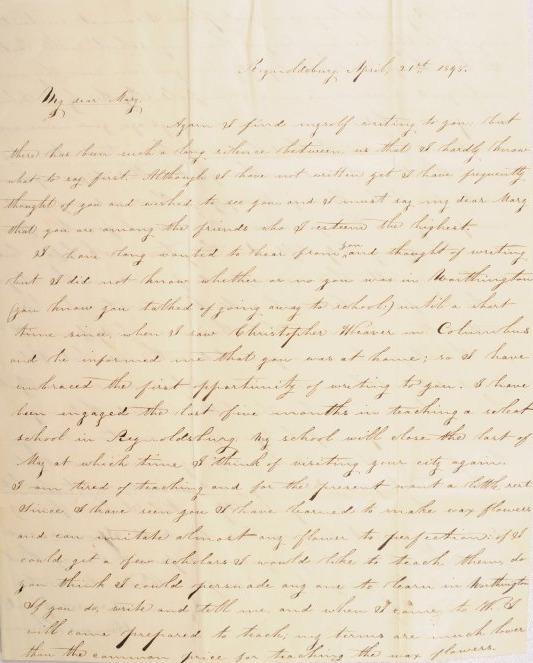 Reynoldsburg April, 21st 1848.
My dear Mary,
Again I find myself writing to you, but
there has been such a long silence between us that I hardly know
what to say first. Although I have not written yet I have frequently
thought of you and wished to see you and I must say my dear Mary
that you are among the friends who I esteem the highest.
I have long wanted to hear from you and thought of writing
but I did not know whether or no you was in Worthington
(you know you talked of going away to school;) until a short
time since, when I saw Christopher Weaver in Columbus
and he informed me that you was at home; so I have
embraced the first opportunity of writing to you. I have
been engaged the last five months in teaching a select
school in Reynoldsburg. My school will close the last of
May at which time I think of visiting your city again.
I am tired of teaching and for the present want a little rest
Since I have seen you I have learned to make wax flowers
and can imitate almost any flower to perfection: if I
could get a few scholars I would like to teach them, do
you think I could persuade any one to learn in Worthington
If you do, write and tell me, and when I come to I
will come prepared to teach, my terms are much lower
than the common price for teaching the wax flowers.